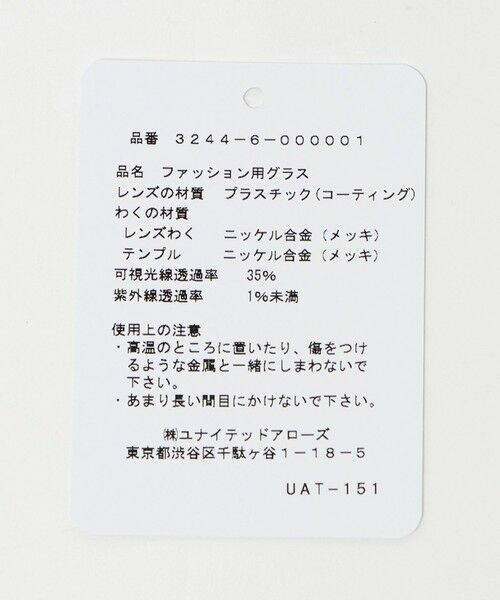 品番　3244-6-000001
品名　ファッション用グラス
レンズの材質　プラスチック(コーティング)
わくの材質
レンズわく　ニッケル合金（メッキ）
テンプル　ニッケル合金（メッキ）
可視光線透過率　35%
紫外線透過率　1%未満
使用上の注意
・高温のところに置いたり、傷をつけ
るような金属と一緒にしまわないで
下さい。
・あまり長い間目にかけないで下さい。
㈱ユナイテッドアローズ
東京都渋谷区千駄ヶ谷1-18-5
UAT-151